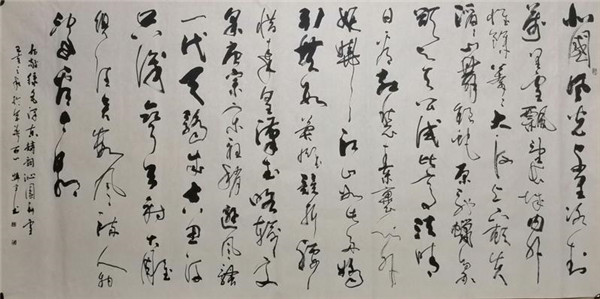 北國風光千里冰封
萬里雪飄望長城内外
惟餘莽莽大河上下頓失
滔滔山舞銀蛇原馳蠟象
欲與天公試比高須晴
日看紅裝素裹分外
妖嬈江山如此多嬌
引無數英雄競折腰
惜秦皇漢武略輸文
采唐宗宋祖稍遜風騷
一代天驕成吉思汗
只識彎弓射大雕
俱往矣數風流人物
還看今朝
錄毛澤東詩詞沁園春雪